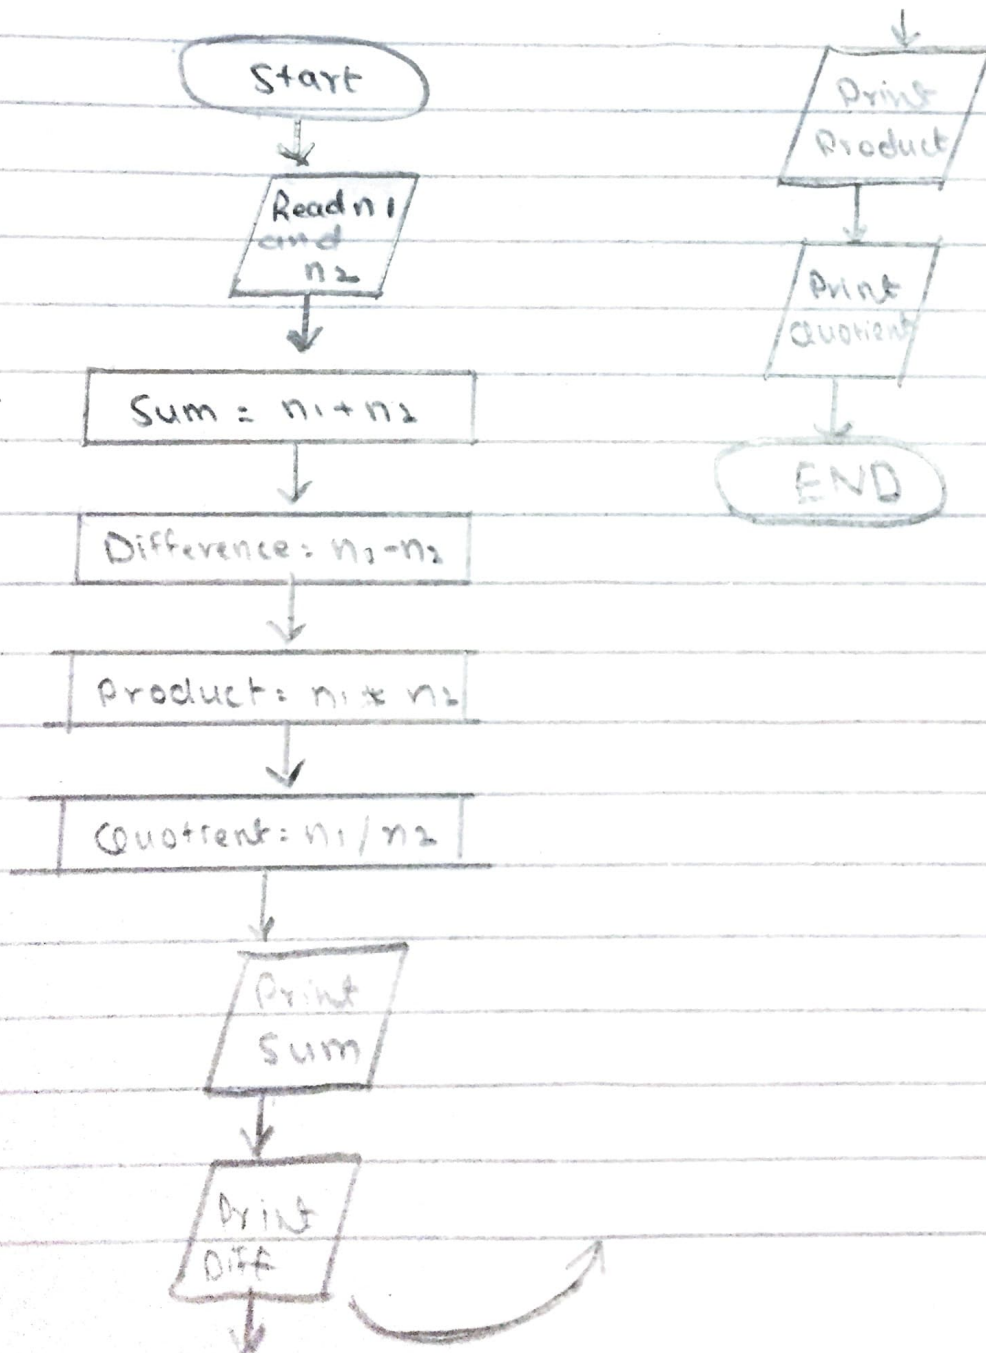 Start
Read n1
and
n2
Sum = n1 + n2
Difference = n1 - n2
Product = n1 * n2
Quotient = n1 / n2
Print
Sum
Print
Diff
Print
Product
Print
Quotient
END